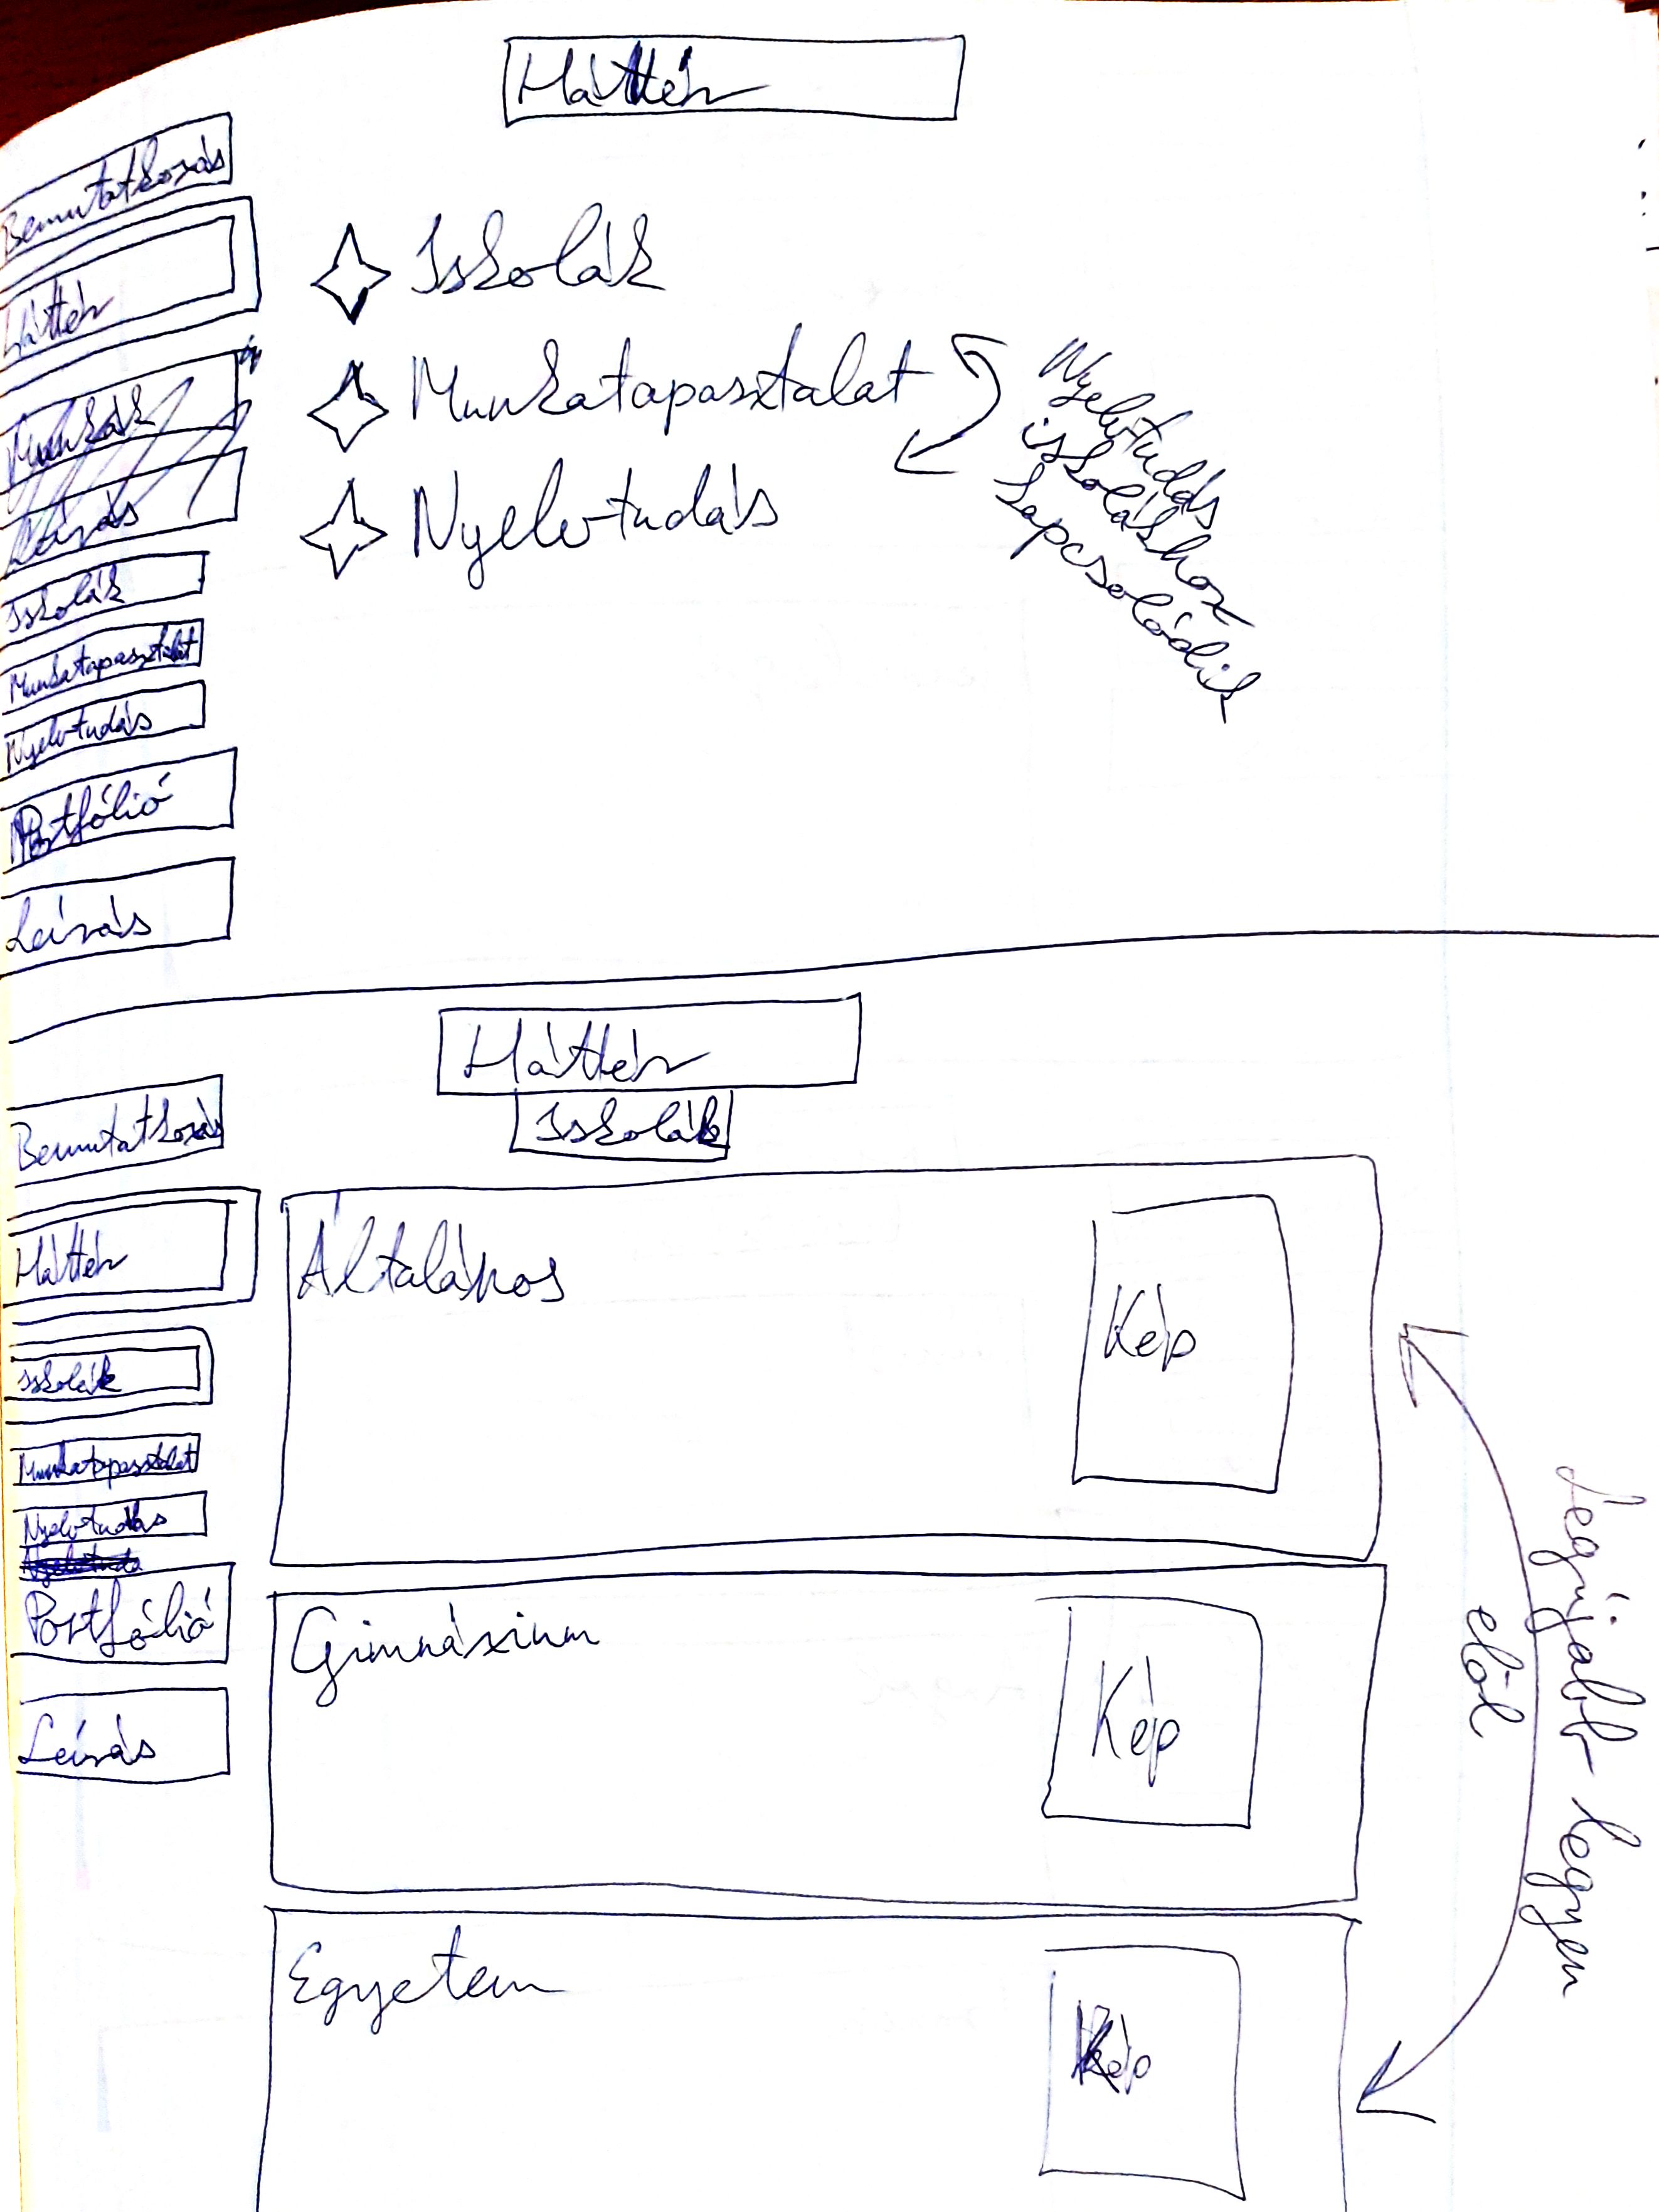 Háttér
Bemutatkozás
Háttér
Munkák
Leírás
Iskolák
Munkatapasztalat
Nyelvtudás
Portfólió
Leírás
Iskolák
Munkatapasztalat
Nyelvtudás
Nyelvtudás
iskolákhoz
kapcsolódik
Háttér
Iskolák
Bemutatkozás
Háttér
Iskolák
Munkatapasztalat
Nyelvtudás
Portfólió
Leírás
Általános
Kép
Gimnázium
Kép
Egyetem
Kép
Legújabb legyen
elöl